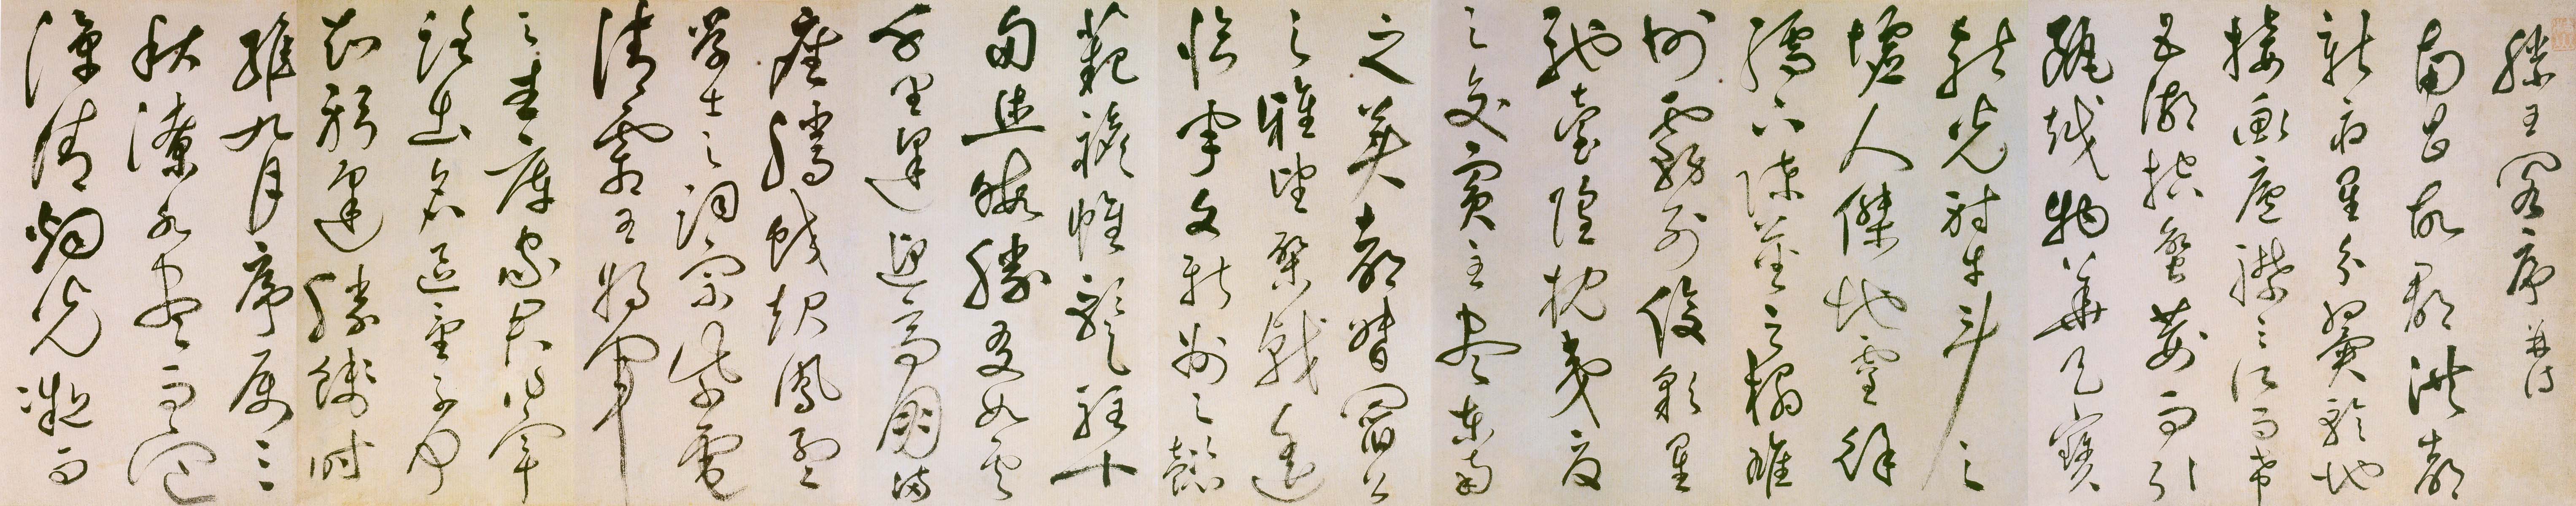 滕王閣序 并詩
南昌故郡洪都
新府星分翼軫地
接衡廬襟三江而帶
五湖控蠻荊而引
甌越物華天寶
龍光射牛斗之
墟人傑地靈徐
孺下陳蕃之榻雄
州霧列俊彩星
馳臺隍枕夷夏
之交賓主盡東南
之美都督閻公
之雅望棨戟遙
臨宇文新州之懿
範襜帷暫駐十
旬休暇勝友如雲
千里逢迎高朋滿
座騰蛟起鳳孟
學士之詞宗紫電
清霜王將軍
之武庫家君作宰
路出名區童子何
知躬逢勝餞時
維九月序屬三
秋潦水盡而寒
潭清烟光凝而